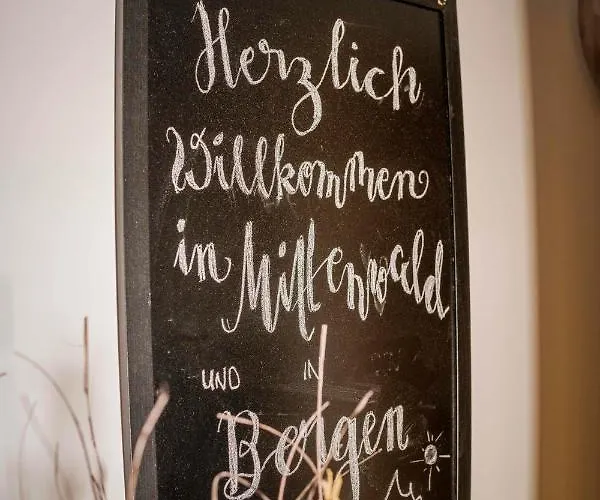 Herzlich
Willkommen
in Mittenwald
UND IN
Bergen